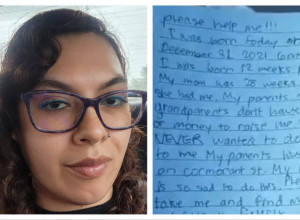 please help me!!!
I was born today on
December 31 2021
I was born 12 weeks
My mom was 28 weeks
she had me. My parents
grandparents don't have
or money to raise me.
NEVER wanted to do
to me My parents live
on cormorant st. My
is so sad to do this.
take me and find